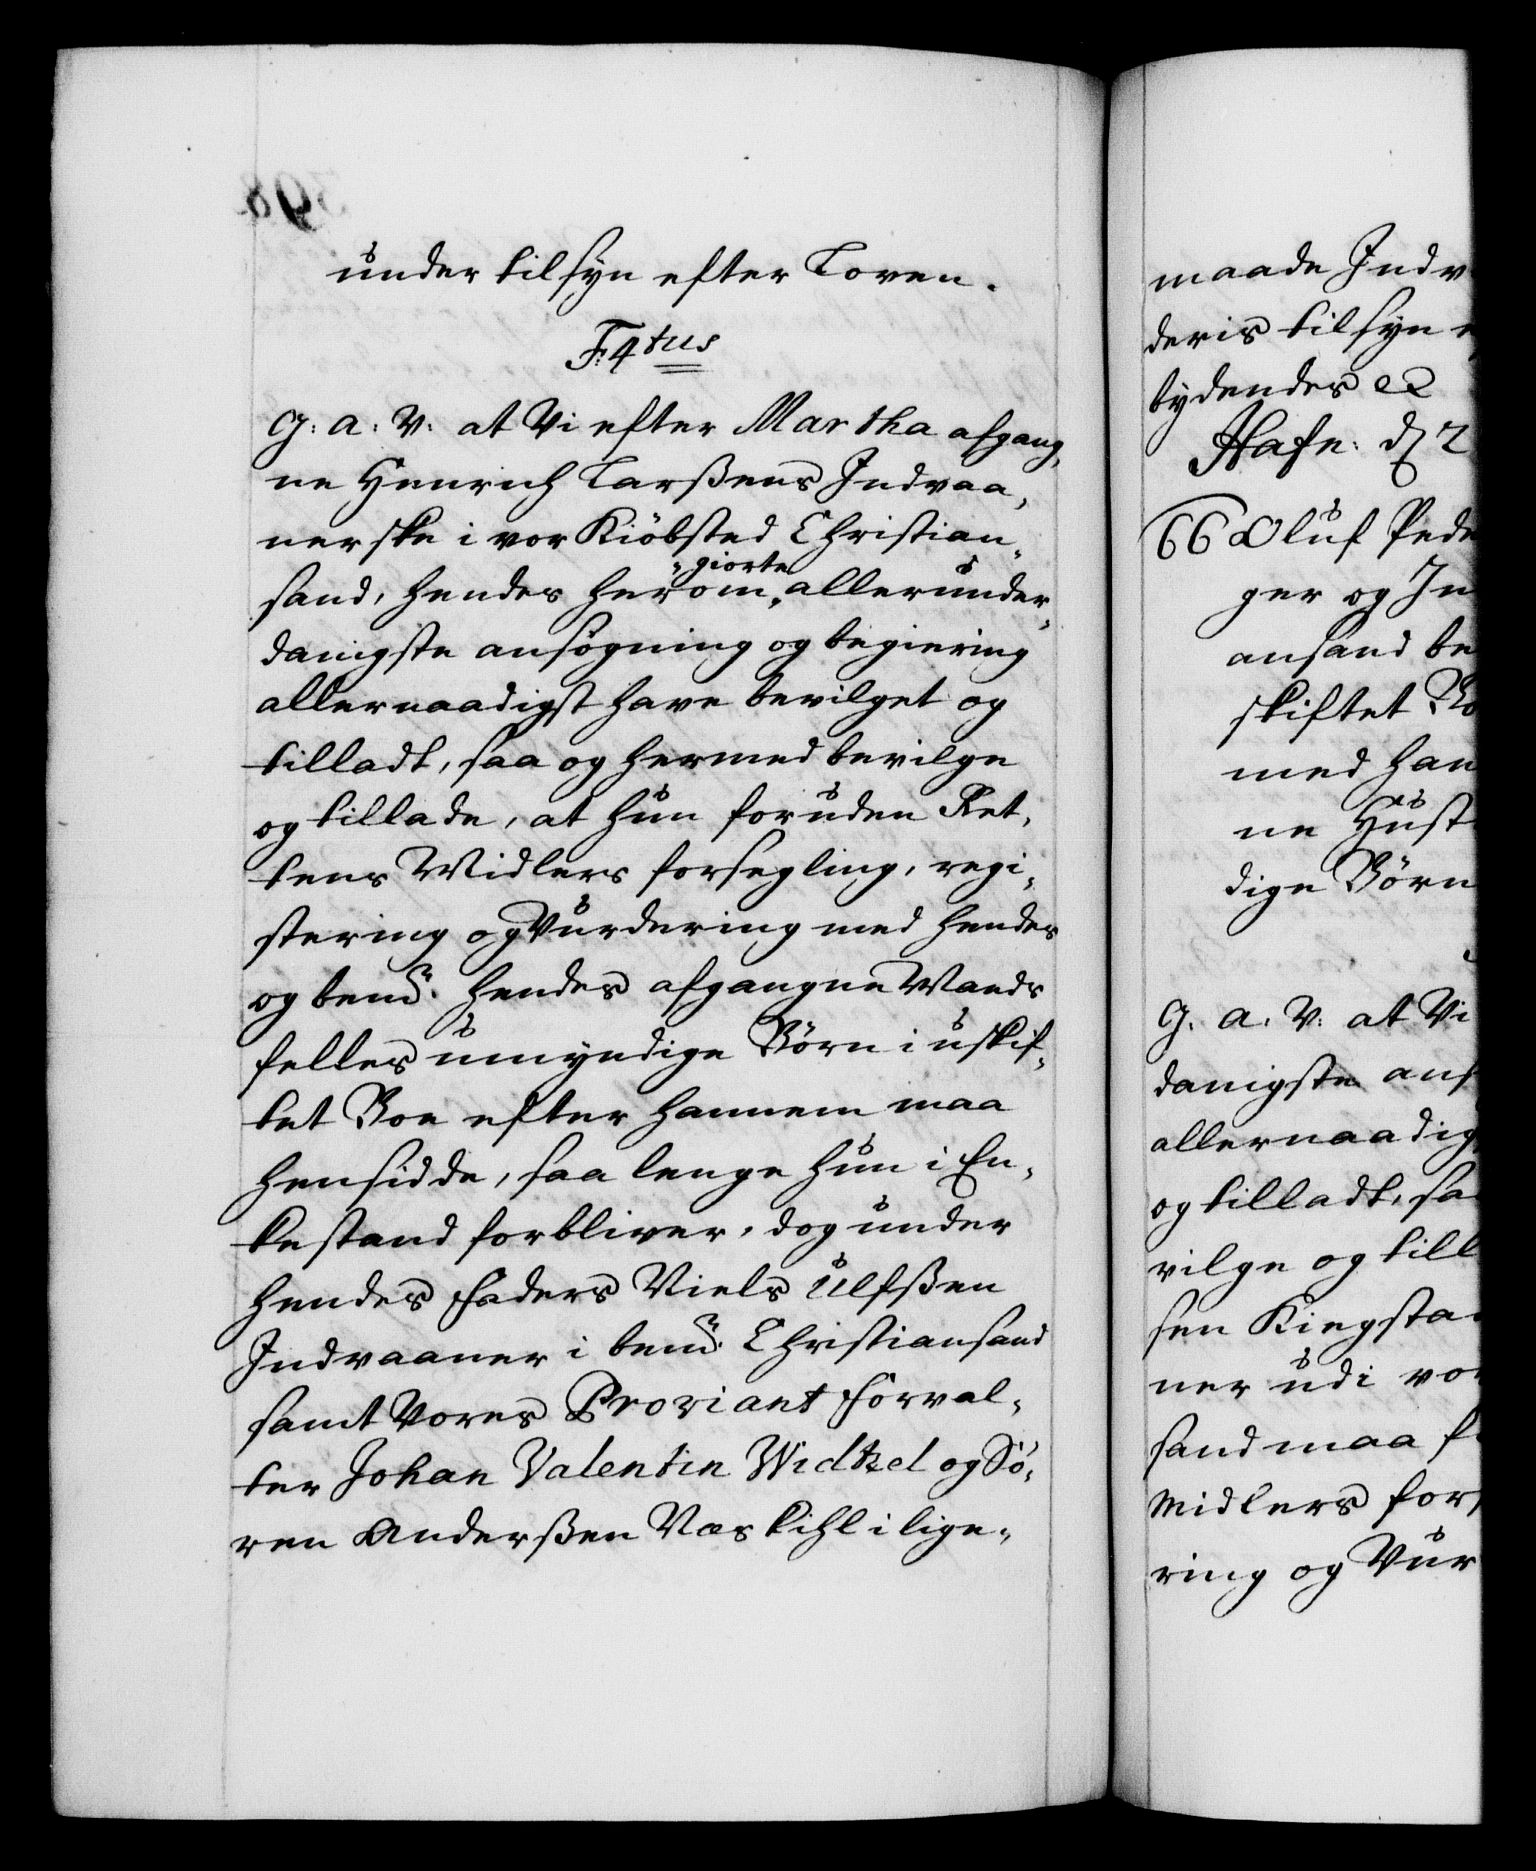 under tilsyn efter Loven.
F: 4tus
G: a: V: at Vi efter Martha afgang,
ne Henrich Larßens Indvaa,
nerske i vor Kiöbsted Christian,
sand, hendes herom giorte allerunder,
danigste ansøgning og begiering
allernaadigst have bevilget og
tilladt, saa og hermed bevilge
og tillade, at hun foruden Ret,
tens Midlers forsegling, regi,
stering og Vurdering med hendes
og bemte hendes afgangne Mands
felles umyndige Börn i uskif,
tet Boe efter hannem maa
hensidde, saa lenge hun i En,
kestand forbliver, dog under
hendes Faders Niels Ulfßen
Indvaaner i bemte Christiansand
samt Vores Proviant Forval,
ter Johan Valentin Widtzel og Sö,
ren Anderßen Næskihl i lige,
maade Indv
deris tilsyn e
bydendes etc
Hafn: d 2
66 Oluf Pede
ger og In
ansand be
skiftet Bo
med han
ne Hust
dige Börn
G: a: V: at Vi
danigste ans
allernaadig
og tilladt, sa
vilge og till
sen Kingsta
ner udi vor
sand maa f
Midlers fors
ring og Vur